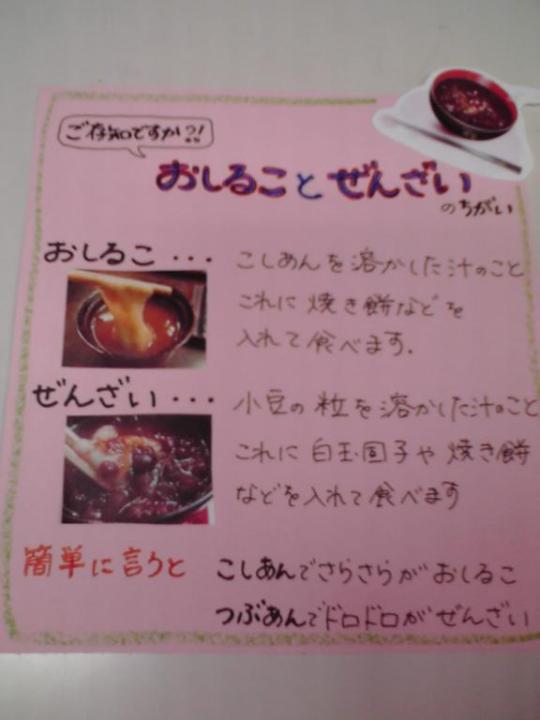 ご存知ですか?!
おしることぜんざい
のちがい
おしるこ・・・
こしあんを溶かした汁のこと
これに焼き餅などを
入れて食べます.
ぜんざい・・・
小豆の粒を溶かした汁のこと
これに白玉団子や焼き餅
などを入れて食べます
簡単に言うと
こしあんでさらさらがおしるこ
つぶあんでドロドロがぜんざい